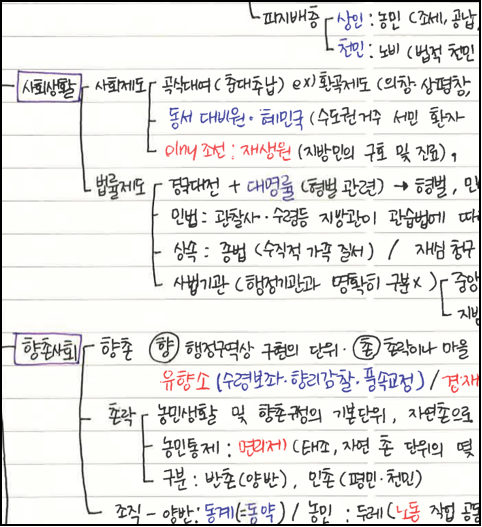 피지배층 상인 : 농민 (조세, 공납,
천민 : 노비 (법적 천민
사회생활 사회제도 곡식대여 (춘대추납) ex) 환곡제도 (의창·상평창,
동서 대비원·혜민국 (수도권 거주 서민 환자
only 조선 : 재생원 (지방민의 구호 및 진료),
법률제도 경국대전 + 대명률 (형벌 관련) → 형벌, 민
민법 : 관찰사·수령등 지방관이 관습법에 따라
상속 : 종법 (수직적 가족 질서) / 재심 청구
사법기관 (행정기관과 명확히 구분X) 중앙
지방
향촌사회 향촌 (향) 행정구역상 구현의 단위· (촌) 촌락이나 마을
유향소 (수령보좌·향리감찰·풍속교정) / 경재
촌락 농민생활 및 향촌구성의 기본단위, 자연촌으로
농민통제 : 면리제) (태조, 자연 촌 단위의 몇
구분 : 반촌(양반), 민촌 (평민·천민)
조직 - 양반: 동계(=동약) / 농민 : 두레 (노동 작업 공동